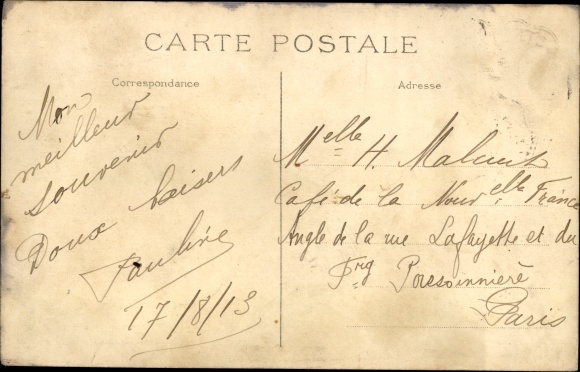 CARTE POSTALE
Correspondance
Mon
meilleur
souvenir
Doux baisers
Pauline
17/8/13
Adresse
Melle H.
Café de la Nouvelle France
Angle de la rue Lafayette et du
Fbrg Poissonnière
Paris